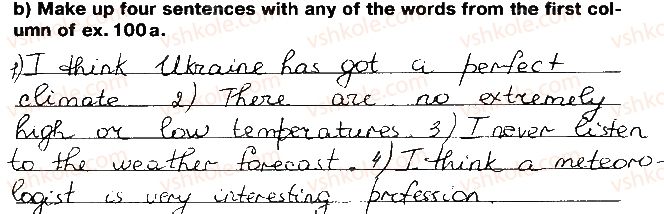 b) Make up four sentences with any of the words from the first col-
umn of ex. 100 a.
1) I think Ukraine has got a perfect
climate 2) There are no extremely
high or low temperatures. 3) I never listen
to the weather forecast. 4) I think a meteoro-
logist is very interesting profession.